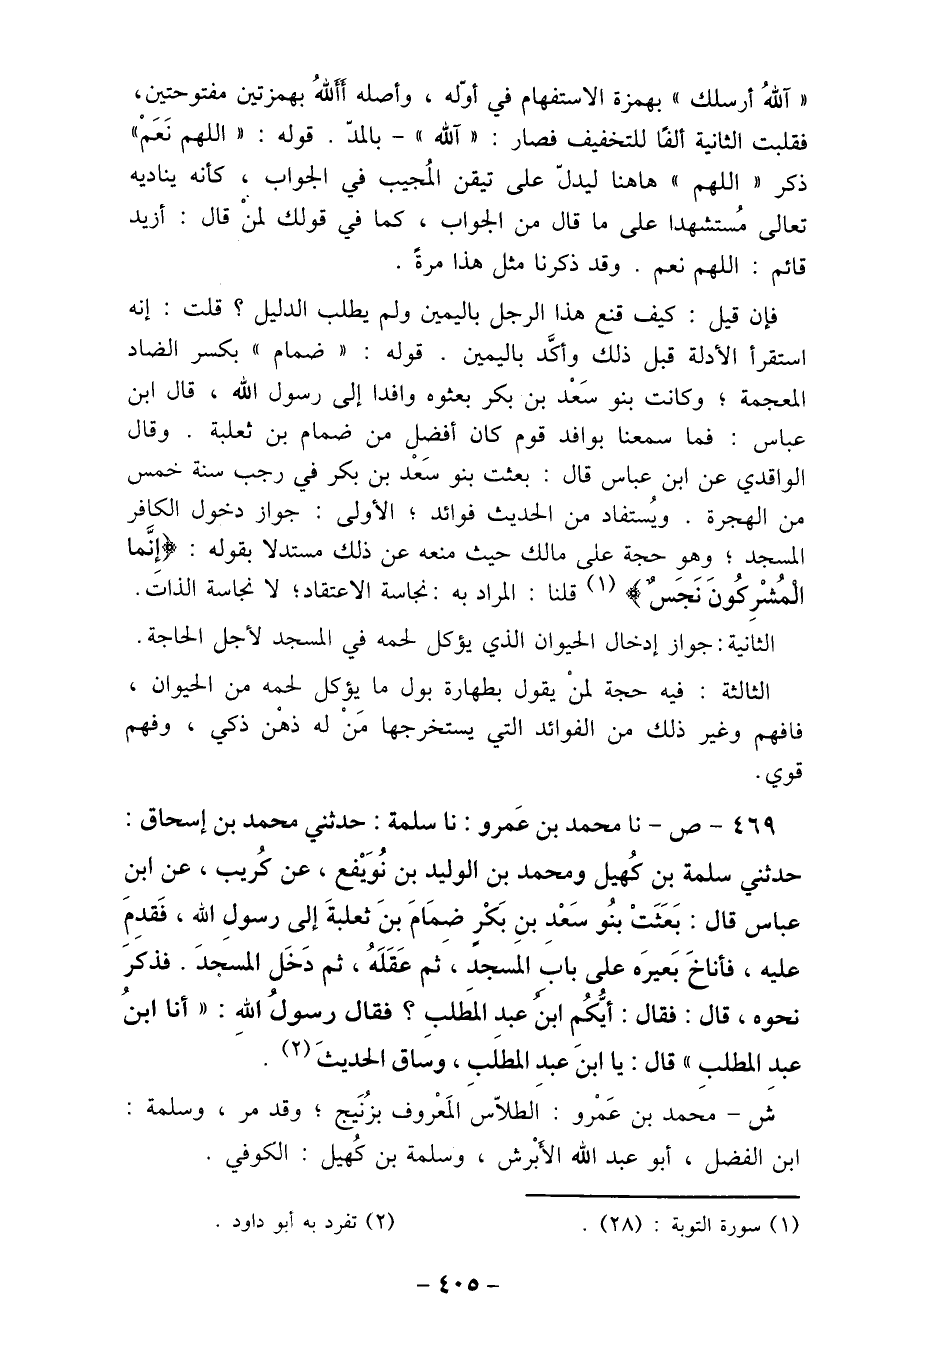 « آللهُ أرسلك » بهمزة الاستفهام في أوّله ، وأصله أَأَللهُ بهمزتين مفتوحتين،
فقلبت الثانية ألفًا للتخفيف فصار : « آلله » - بالمدّ . قوله : « اللهم نَعَمْ»
ذكر « اللهم » هاهنا ليدلّ على تيقن المُجيب في الجواب ، كأنه يناديه
تعالى مُستشهدا على ما قال من الجواب ، كما في قولك لمنْ قال : أزيد
قائم : اللهم نعم . وقد ذكرنا مثل هذا مرةً .
فإن قيل : كيف قنع هذا الرجل باليمين ولم يطلب الدليل ؟ قلت : إنه
استقرأ الأدلة قبل ذلك وأكَّد باليمين . قوله : « ضمام » بكسر الضاد
المعجمة ؛ وكانت بنو سَعْد بن بكر بعثوه وافدا إلى رسول الله ، قال ابن
عباس : فما سمعنا بوافد قوم كان أفضل من ضمام بن ثعلبة . وقال
الواقدي عن ابن عباس قال : بعثت بنو سَعْد بن بكر في رجب سنة خمس
من الهجرة . ويُستفاد من الحديث فوائد ؛ الأولى : جواز دخول الكافر
المسجد ؛ وهو حجة على مالك حيث منعه عن ذلك مستدلا بقوله : ﴿إِنَّما
الْمُشْرِكُونَ نَجَسٌ﴾ (١) قلنا : المراد به :نجاسة الاعتقاد؛ لا نجاسة الذات.
الثانية:جواز إدخال الحيوان الذي يؤكل لحمه في المسجد لأجل الحاجة.
الثالثة : فيه حجة لمنْ يقول بطهارة بول ما يؤكل لحمه من الحيوان ،
فافهم وغير ذلك من الفوائد التي يستخرجها مَنْ له ذهْن ذكي ، وفهم
قوي.
٤٦٩ - ص - نا محمد بن عَمرو : نا سلمة : حدثني محمد بن إسحاق :
حدثني سلمة بن كُهيل ومحمد بن الوليد بن نُوَيْفع ، عن كُريب ، عن ابن
عباس قال : بَعَثَتْ بنُو سَعْد بن بَكْرٍ ضمَامَ بنَ ثعلبةَ إلى رسولِ الله ، فَقدمَ
عليه ، فأناخَ بَعيرَه على بابِ المسجدِ ، ثم عَقَلَهُ ، ثم دَخَل المسجدَ . فذكرَ
نحوه ، قال : فقال : أيُّكُم ابنُ عبدِ المطلبِ ؟ فقال رسولُ اللهِ : « أنا ابنُ
عبدِ المطلبِ » قال : يا ابنَ عبدِ المطلبِ ، وساق الحديثَ (٢) .
ش - محمد بن عَمْرو : الطلاّس المَعْروف بزُنَيج ؛ وقد مر ، وسلمة :
ابن الفضل ، أبو عبد الله الأبْرش ، وسلمة بن كُهيل : الكوفي .
(١) سورة التوبة : (٢٨) .
(٢) تفرد به أبو داود .
- ٤٠٥ -